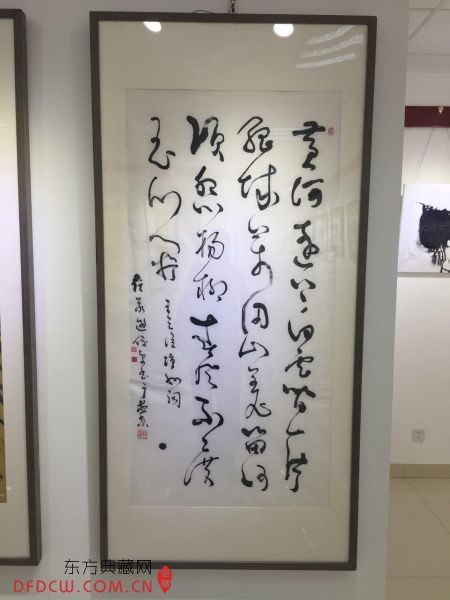 黄河远上白云间一片
孤城万仞山羌笛何
须怨杨柳春风不度
玉门关
王之涣凉州词
东方典藏网
DFDCW.COM.CN